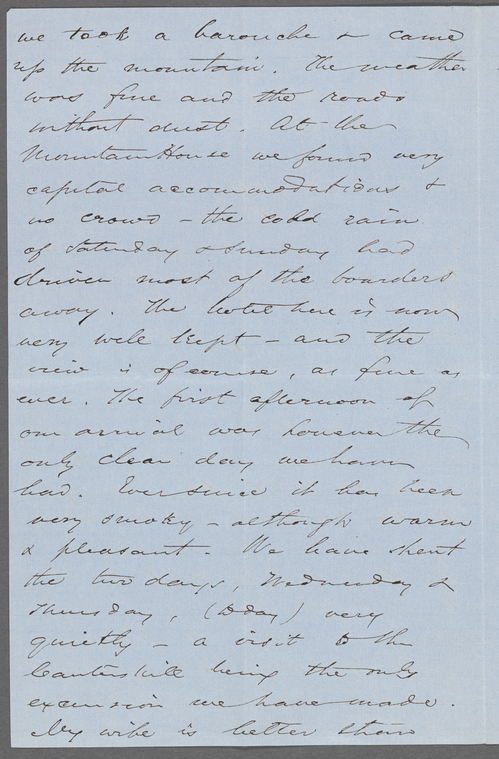 we took a barouche & came
up the mountain. The weather
was fine and the roads
without dust. At the
Mountain House we found very
capital accommodations &
no crowd – the cold rain
of Saturday & Sunday had
driven most of the boarders
away. The hotel here is now
very well kept – and the
view is of course, as fine as
ever. The first afternoon of
our arrival was however the
only clear day we have
had. Ever since it has been
very smoky – although warm
& pleasant. We have spent
the two days, Wednesday &
Thursday, (today) very
quietly – a visit to the
being the only
excursion we have made.
My wife is better than